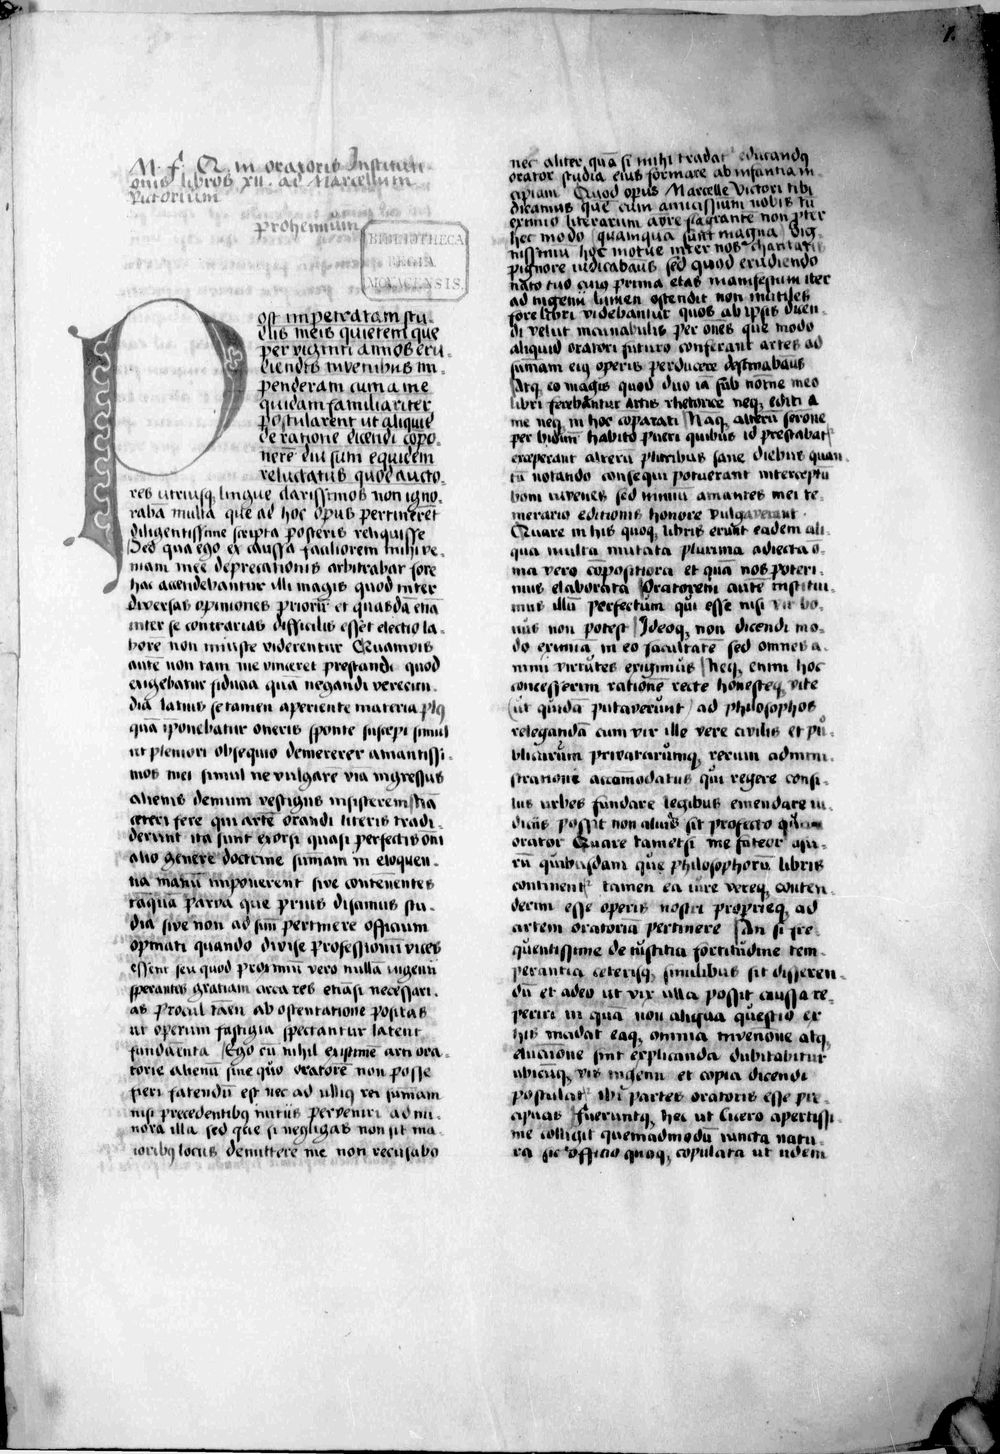 1.
M. f. Q. in oratoris Instituti
onis libros XII. ad Marcellum
victorium
prohemium
BIBLIOTHECA
REGIA
MONACENSIS.
Post impetratam stu,
diis meis quietem que
per viginti annos eru,
diendis iuvenibus im,
penderam cum a me
quidam familiariter
postularent ut aliquid
de ratione dicendi cōpo,
nerē diu sum equidem
reluctatus quod aucto,
res utriusq, lingue clarissimos non igno,
rabā multa que ad hoc opus pertinerēt
diligentissime scripta posteris reliquisse
Sed qua ego ex caussa faciliorem mihi ve,
niam mee deprecationis arbitrabar fore
hac accendebantur illi magis quod inter
diversas opiniones priorū et quasdā etiā
inter se contrarias difficilis esset electio la,
borē non iniuste viderentur Quamvis
autē non tam me vinceret prestandi quod
exigebatur fiducia quā negandi verecun,
dia latius se tamen aperiente materia plus
quā īponebatur oneris sponte suscepi simul
ut pleniori obsequio demererer amantissi,
mos mei simul ne vulgarē viā ingressus
alienis demum vestigiis insisterem Nā
ceteri fere qui artē orandi literis tradi,
derunt ita sunt exorsi quasi perfectis ōni
alio genere doctrine sumam in eloquen,
tia manū imponerent sive contēnentes
tāquā parva que prius discimus stu,
dia sive non ad suū pertinere officium
opinati quando divise professionū vices
essent seu quod proximū vero nullā ingenii
sperantes gratiam circa res etiāsi necessari,
as procul tam̄ ab ostentatione positas
ut operum fastigia spectantur latent
fundam̄ta Ego cū nihil existimē arti ora,
torie alienū sine quo oratorē non posse
fieri fatendū est nec ad ullius rei sumam
nisi precedentibus initiis perveniri ad mi,
nora illa sed que si negligas non sit ma,
ioribus locus demittere me non recusabo
nec aliter quā si mihi tradat educandus
orator studia eius formare ab infantia in,
cipiam Quod opus Marcelle Victori tibi
dicamus quē cum amicissimū nobis tū
eximio literarum amore flagrantē non pter
hec modo (quamquā sunt magna) dig,
nissimū hoc motue inter nos charitatis
pignore iudicabamus sed quod erudiendo
nato tuo cuius prima etas manifestum iter
ad ingenii lumen ostendit non inutiles
fore libri videbantur quos ab ipsis dicen,
di velut incunabulis per omnes que modo
aliquid oratori futuro conferant artes ad
sumam eius operis perducere destinabamus
Atq, eo magis quod duo iā sub noīne meo
libri ferebantur artis rhetorice neq, editi a
me neq, in hoc cōparati Naq, alterū sermōne
per biduū habito pueri quibus id prestabat
exceperant alterū pluribus sane diebus quan,
tū notando consequi potuerant interceptū
boni iuvenes sed nimiū amantes mei te,
merario editionis honore vulgaverant.
Quare in his quoq, libris erunt eadem ali,
qua multa mutata plurima adiecta o,
mīa vero cōpositiora et quā nos poteri,
mus elaborata Oratorem autē institui,
mus illū perfectum qui esse nisi vir bo,
nus non potest Ideoq, non dicendi mo,
do eximiā in eo facultatē sed omnes a,
nimi virtutes exigimus Neq, enim hoc
concesserim rationē recte honesteq, vite
(ut quidā putaverunt) ad philosophos
relegandā cum vir ille vere civilis et pu,
blicarum privatarumq, rerum admini,
strationi accōmodatus qui regere consi,
liis urbes fundare legibus emendare iu,
diciis possit non alius sit profecto quam
orator Quare tametsi me fateor usu,
rū quibusdam que philosophorū libris
continentur tamen ea iure vereq, conten,
derim esse operis nostri proprieq, ad
artem oratoriā pertinere An si fre,
quentissime de iustitia fortitudine tem,
perantia ceterisq, similibus sit disseren,
dū et adeo ut vix ulla possit caussa re,
periri in quā non aliqua questio ex
his incidat eaq, omnia invenōne atq,
elucōione sint explicanda dubitabitur
ubicūq, vis ingenii et copia dicendi
postulatur ibi partes oratoris esse pre,
cipuas Fueruntq, hec ut Cicero apertissi,
me colligit quemadmodū iuncta natu,
ra sic officio quoq, copulata ut iidem